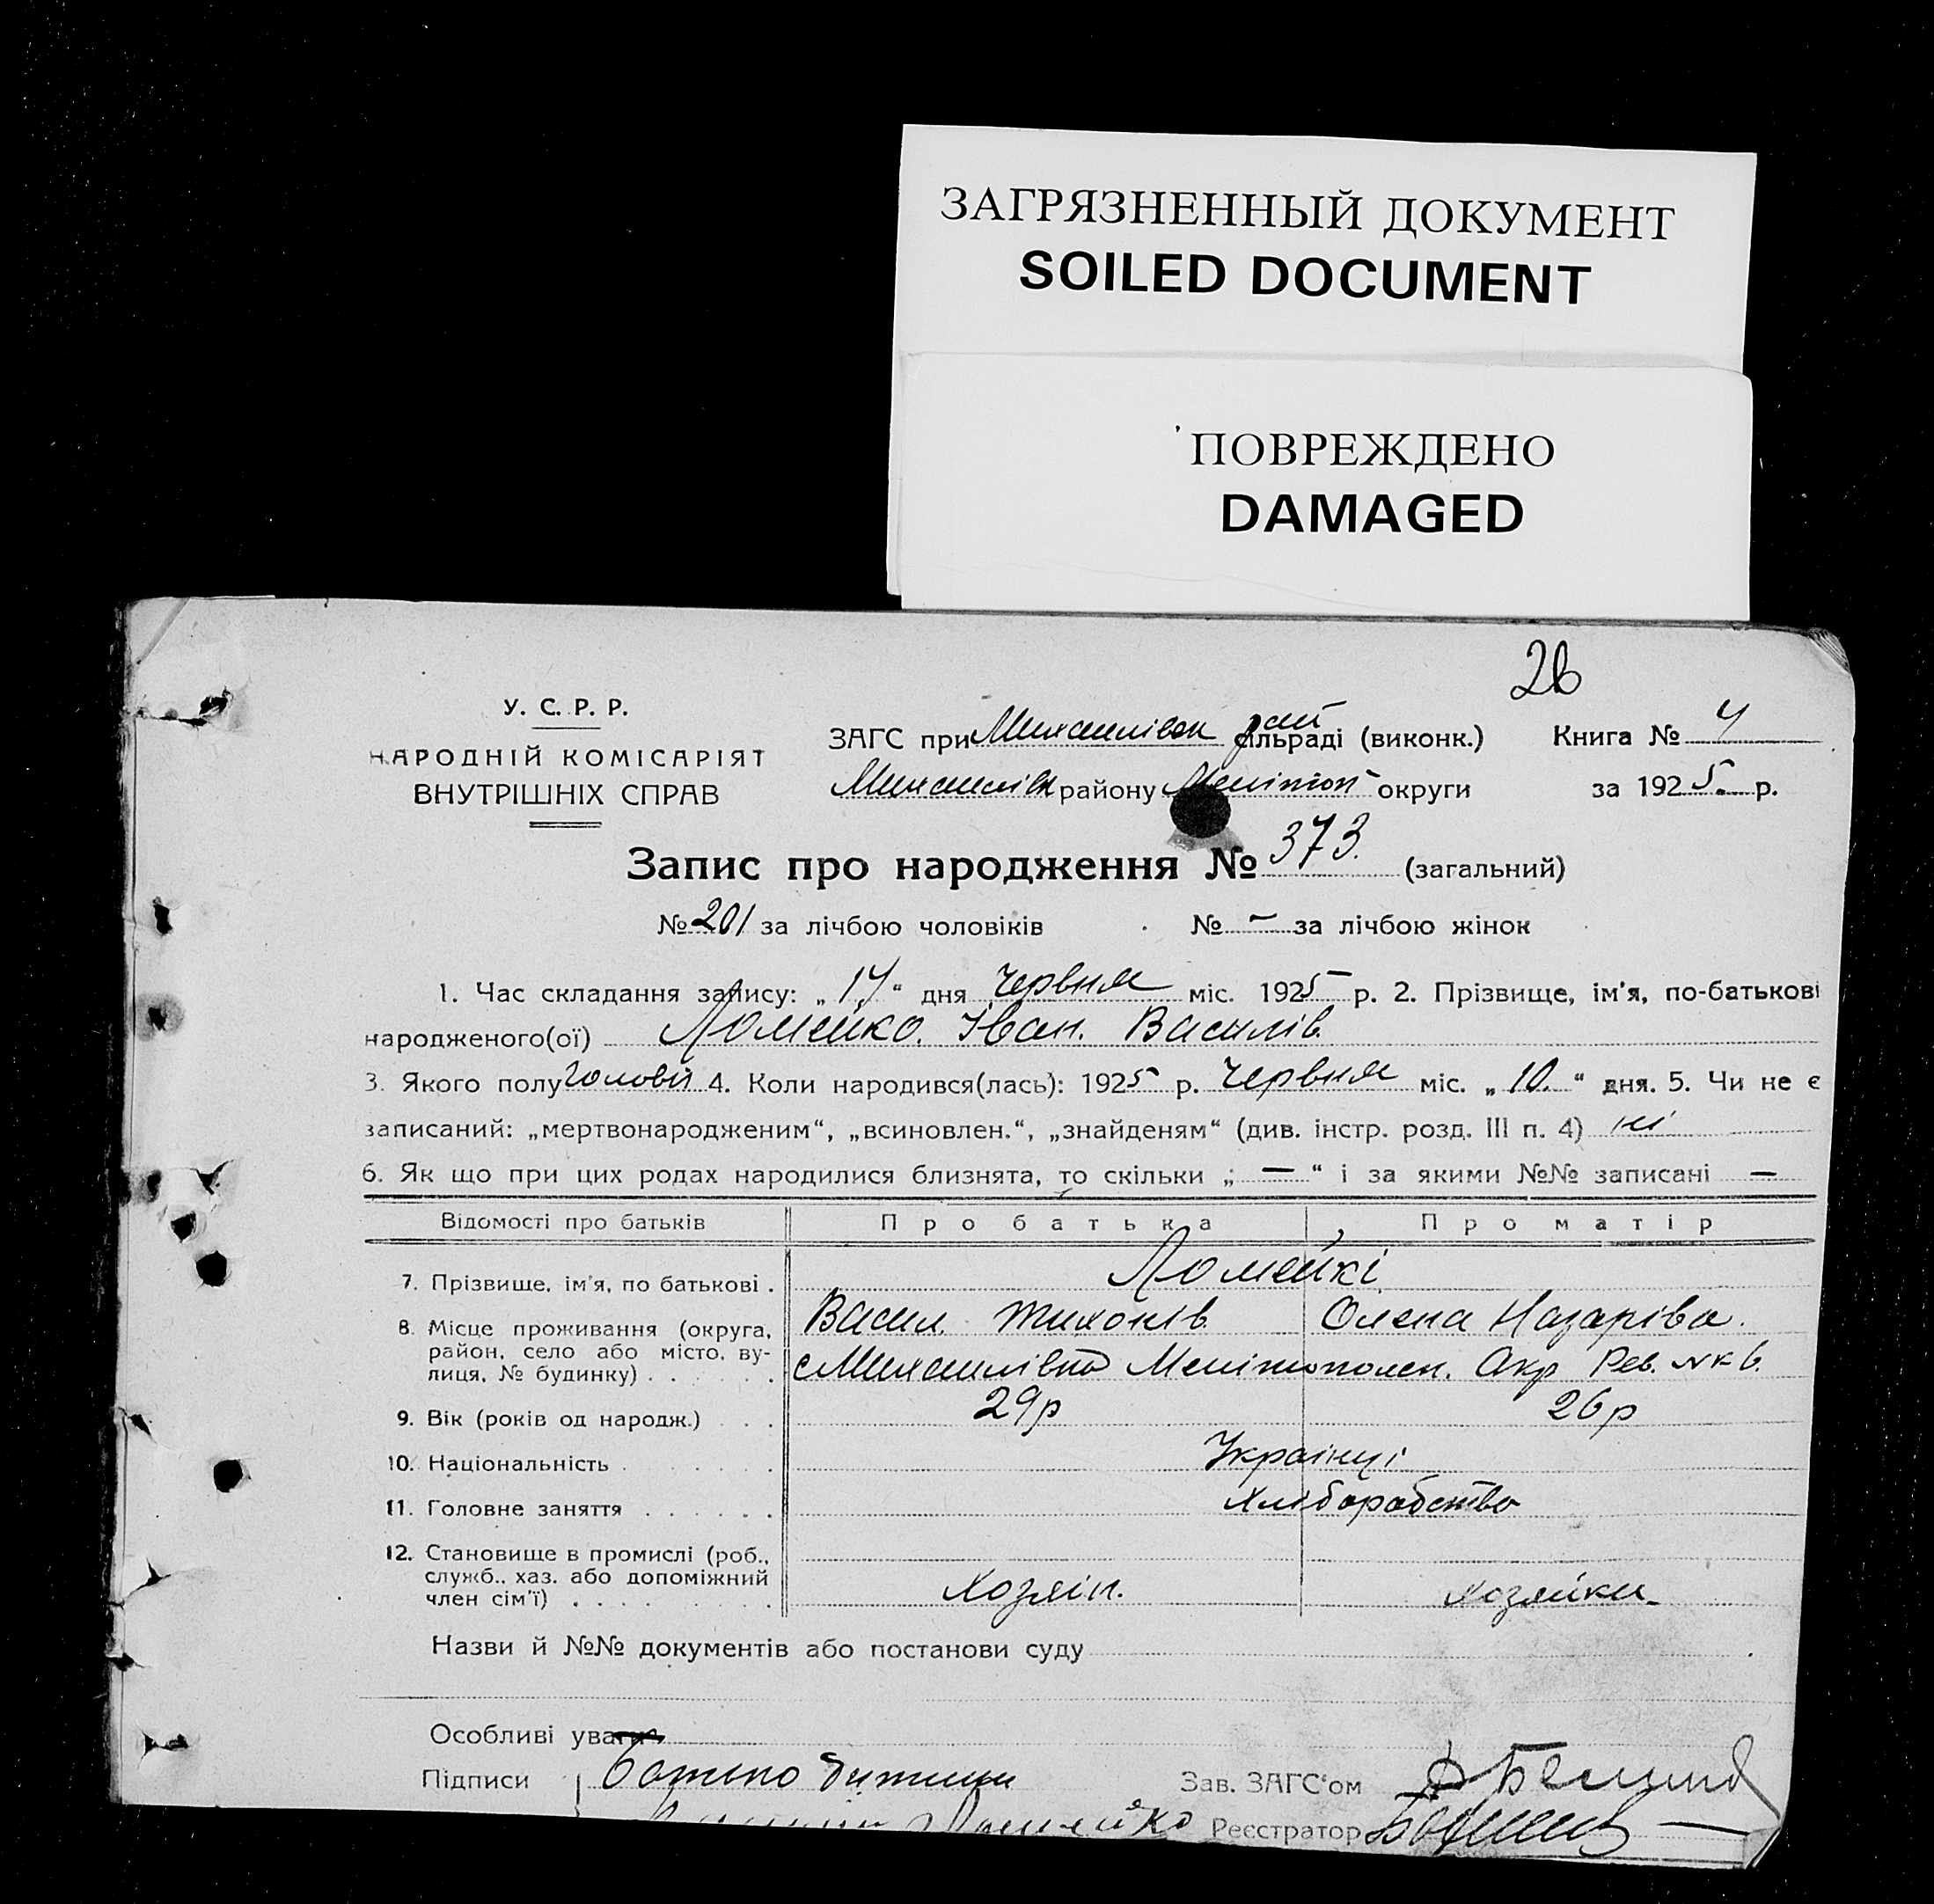 ЗАГРЯЗНЕННЫЙ ДОКУМЕНТ
SOILED DOCUMENT
ПОВРЕЖДЕНО
DAMAGED
26
У. С. Р. Р.
НАРОДНІЙ КОМІСАРІЯТ
ВНУТРІШНІХ СПРАВ
ЗАГС при Михайлівск рай сільраді (виконк.) Книга № 4
Михайлівск району Мелітоп округи за 1925 р.
Запис про народження № 373. (загальний)
№ 201 за лічбою чоловіків № — за лічбою жінок
1. Час складання запису: „ 14 “ дня Червня міс. 1925 р. 2. Прізвище, ім'я, по-батькові
народженого(ої) Ломейко. Іван. Василів.
3. Якого полу Чоловіч 4. Коли народився(лась): 1925 р. Червня міс. „ 10. “ дня. 5. Чи не є
записаний: „мертвонародженим“, „всиновлен.“, „знайденям“ (див. інстр. розд. III п. 4) ні
6. Як що при цих родах народилися близнята, то скільки „ — “ і за якими №№ записані —
Відомості про батьків Про батька Про матір
7. Прізвище, ім'я, по батькові . Ломейкі
Васил. Тихонів. Олена Назарівa.
8. Місце проживання (округа,
район, село або місто, ву-
лиця, № будинку) . . . . . . с Михайлівка Мелітополск. Окр Рев.
9. Вік (років од народж.) . . . 29р 26р
10. Національність . . . . . . Українці
11. Головне заняття . . . . . . Хліборобство
12. Становище в промислі (роб.,
служб., хаз. або допоміжний
член сім'ї) . . . . . . . . Хозяін. Хозяйка
Назви й №№ документів або постанови суду
Особливі уваги
Підписи Зав. ЗАГС'ом
Ломейко Реєстратор